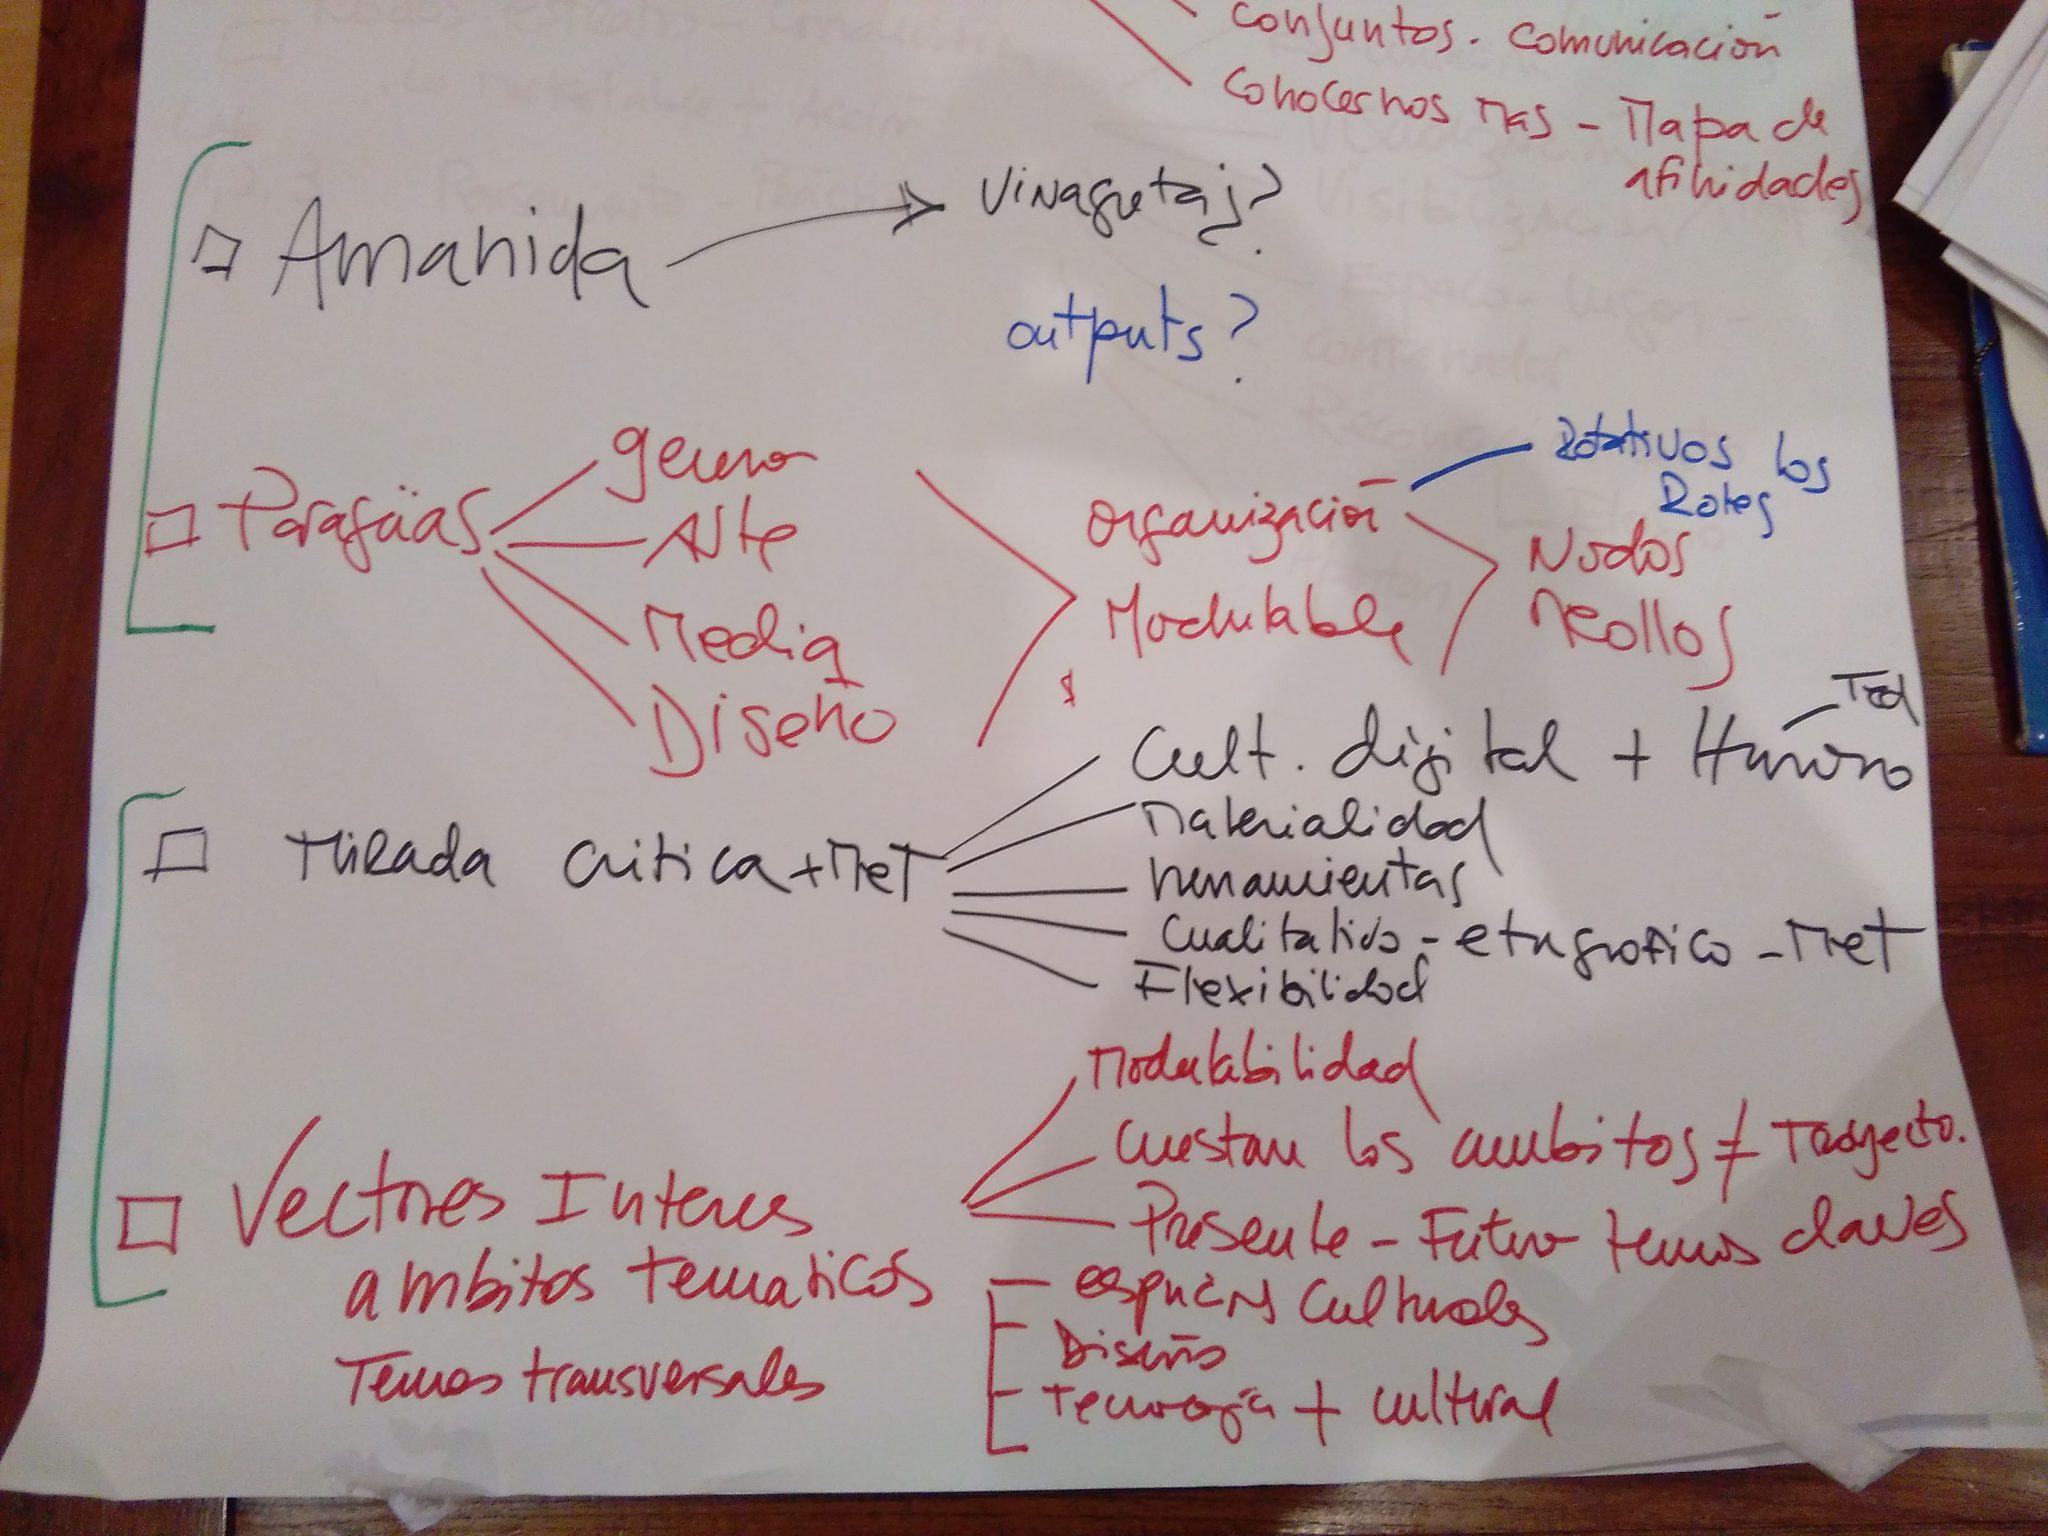 conjuntos. comunicación
conocernos mas - Mapa de
afinidades
Amanida
vinagretas?
outputs?
Paragüas
genero
Arte
Media
Diseño
organización
Modulable
Rotativos los
Roles
Nodos
Meollos
Mirada critica + Met
Cult. digital + Humano
Materialidad
herramientas
Cualitativo - etnografico - Met
Flexibilidad
Vectores Interes
ambitos tematicos
Temas transversales
Modulabilidad
los ambitos ≠ Proyecto.
Presente - Futuro temas claves
espacios culturales
Diseño
Tecnología + cultural